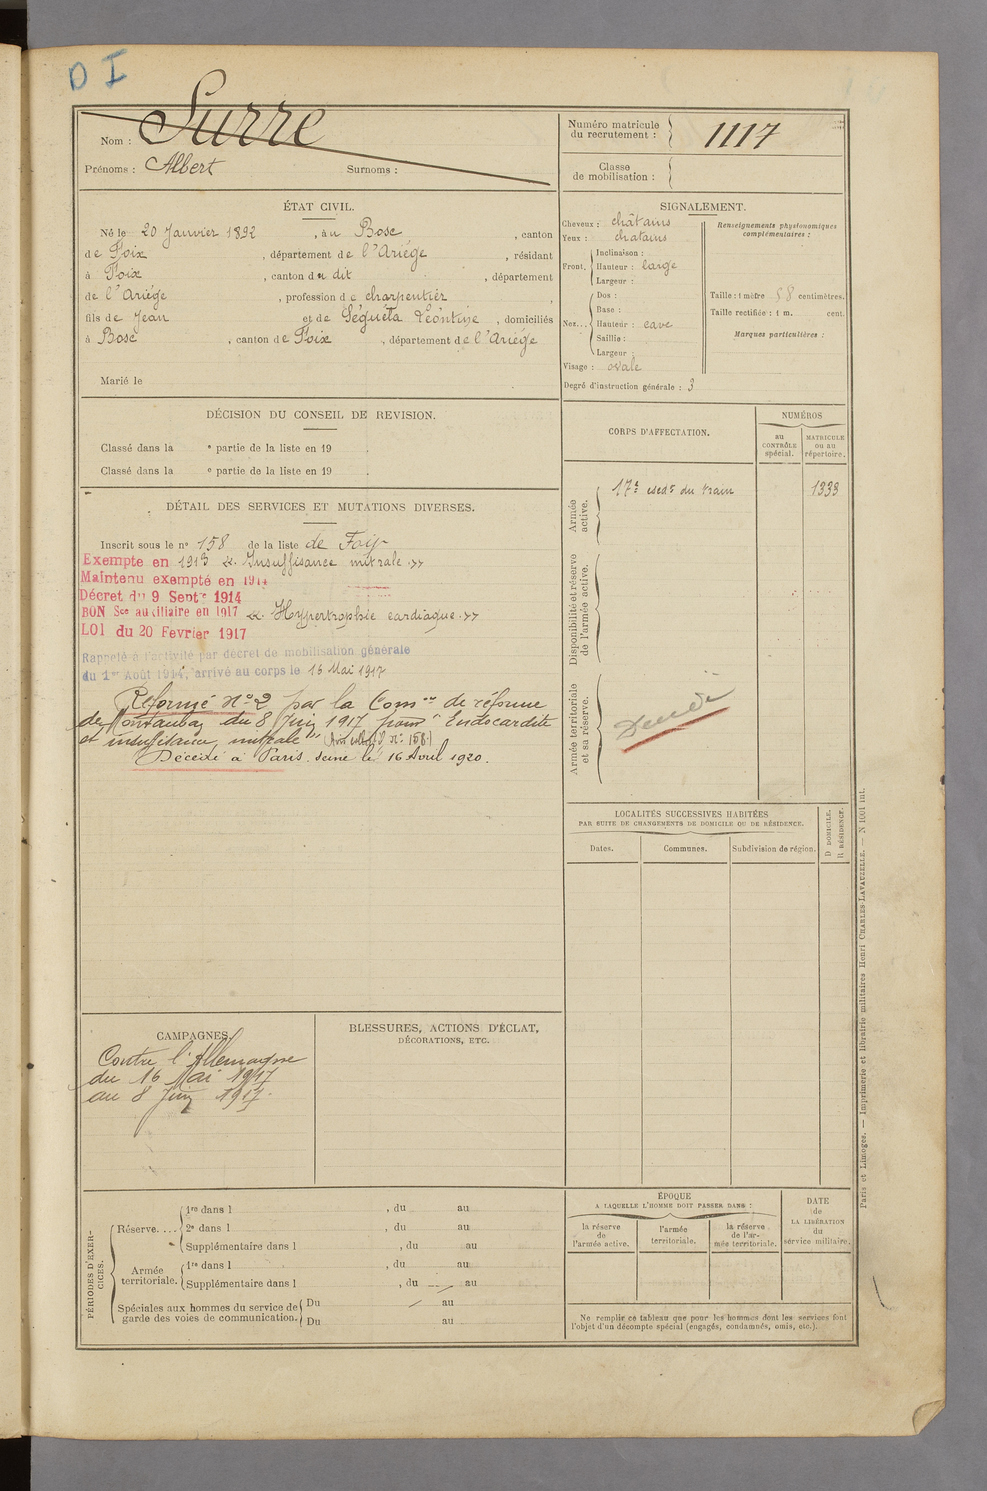 D I
Nom : Surre
Prénoms : Albert Surnoms :
Numéro matricule du recrutement : 1117
Classe de mobilisation :
ÉTAT CIVIL.
Né le 20 Janvier 1892, à u Bosc, canton
de Foix, département de l'Ariége, résidant
à Foix, canton du dit, département
de l'Ariége, profession de charpentier,
fils de Jean et de Ségueta Léontine, domiciliés
à Bosc, canton de Foix, département de l'Ariége
Marié le
SIGNALEMENT.
Cheveux : châtains
Yeux : chatains
Front. Inclinaison :
Hauteur : large
Largeur :
Nez... Dos :
Base :
Hauteur : cave
Saillie :
Largeur :
Visage : ovale
Degré d'instruction générale : 3
Renseignements physionomiques complémentaires :
Taille : 1 mètre 58 centimètres.
Taille rectifiée : 1 m. cent.
Marques particulières :
DÉCISION DU CONSEIL DE REVISION.
Classé dans la e partie de la liste en 19 .
Classé dans la e partie de la liste en 19 .
DÉTAIL DES SERVICES ET MUTATIONS DIVERSES.
Inscrit sous le n° 158 de la liste de Foix
Exempte en 1913 « Insuffisance mitrale »
Maintenu exempté en 1914
Décret du 9 Septe 1914
BON Sce auxiliaire en 1917 « Hypertrophie cardiaque »
LOI du 20 Fevrier 1917
Rappelé à l'activité par décret de mobilisation générale
du 1er Août 1914, arrivé au corps le 16 Mai 1917
Réformé N° 2 par la Comon de réforme
de Montauban du 8 Juin 1917 pour "Endocardite
et insuffisance mitrale" N° 158
Décédé à Paris. Seine le 16 Avril 1920.
CORPS D'AFFECTATION.
NUMÉROS
au CONTRÔLE spécial.
MATRICULE ou au répertoire.
Armée active.
17e escdn du train 1333
Disponibilité et réserve de l'armée active.
Armée territoriale et sa réserve.
LOCALITÉS SUCCESSIVES HABITÉES
PAR SUITE DE CHANGEMENTS DE DOMICILE OU DE RÉSIDENCE.
D DOMICILE.
R RÉSIDENCE.
Dates. Communes. Subdivision de région.
CAMPAGNES.
Contre l'Allemagne
du 16 Mai 1917
au 8 Juin 1917.
BLESSURES, ACTIONS D'ÉCLAT,
DÉCORATIONS, ETC.
PÉRIODES D'EXERCICES.
Réserve.... 1re dans l , du au
2e dans l , du au
Supplémentaire dans l , du au
Armée territoriale. 1re dans l , du au
Supplémentaire dans l , du au
Spéciales aux hommes du service de garde des voies de communication. Du au
Du au
ÉPOQUE
A LAQUELLE L'HOMME DOIT PASSER DANS :
la réserve de l'armée active.
l'armée territoriale.
la réserve de l'armée territoriale.
DATE de LA LIBÉRATION du service militaire.
Ne remplir ce tableau que pour les hommes dont les services font
l'objet d'un décompte spécial (engagés, condamnés, omis, etc.).
Paris et Limoges. — Imprimerie et librairie militaires Henri CHARLES-LAVAUZELLE. — N 1001 int.